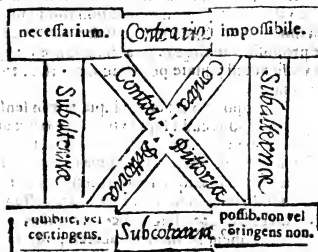 necessarium.
Contraria
impossibile.
Subalternæ
Contra
Contra
Subalternæ
dictoria
dictoriæ
vel
contingens.
Subcontraria
possib. non vel
cõtingens non.